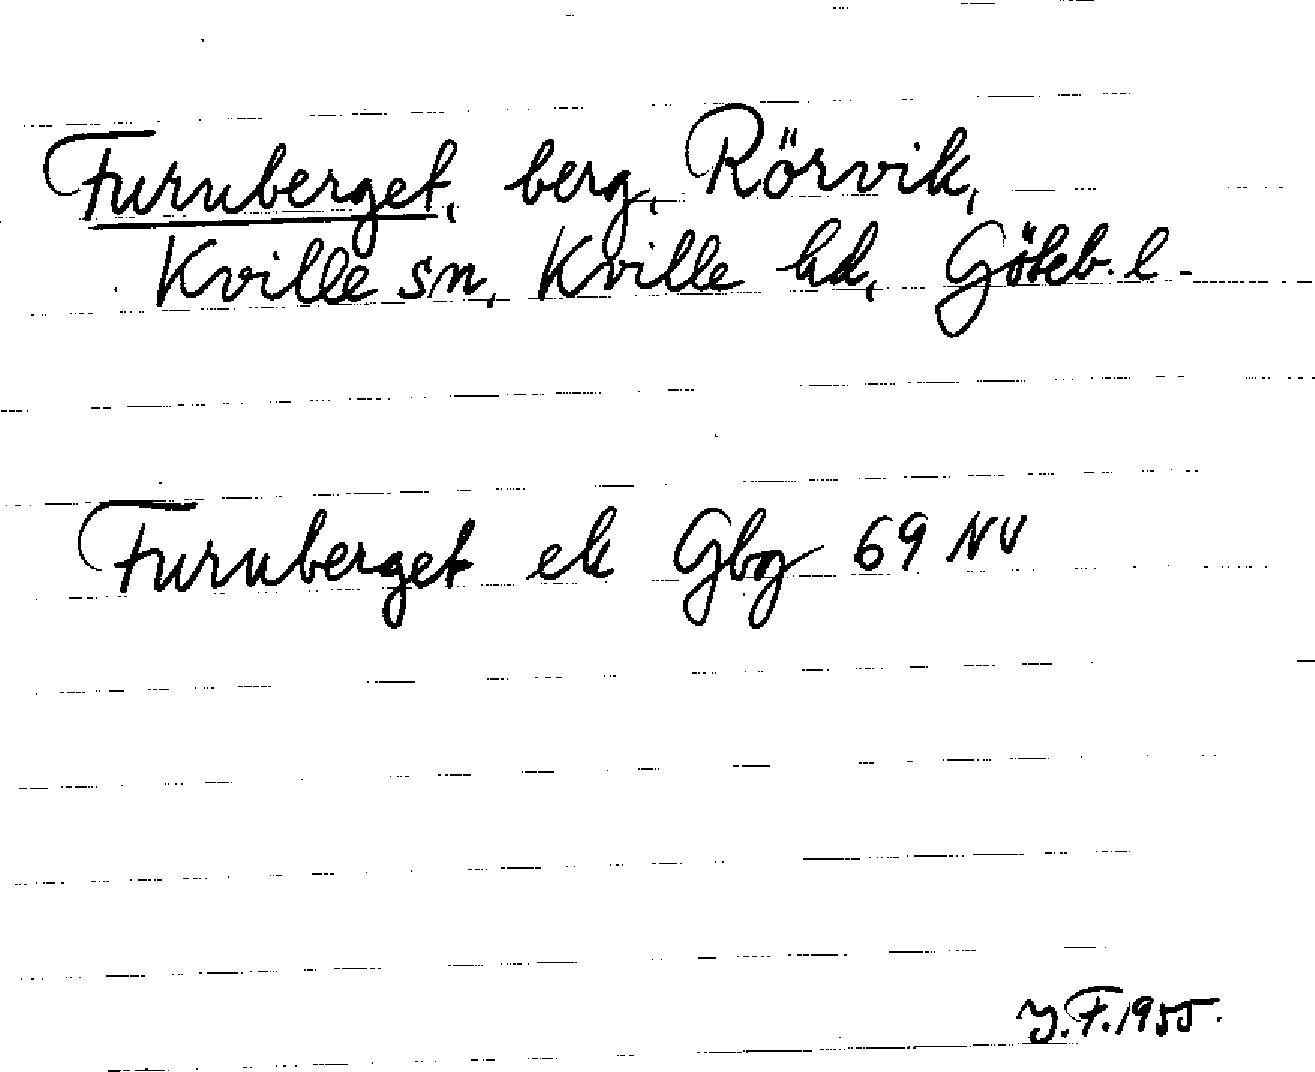 Furuberget, berg, Rörvik,
Kville sn, Kville hd, Göteb. l.
Furuberget ek Gbg 69 NV
Y.F. 1955.